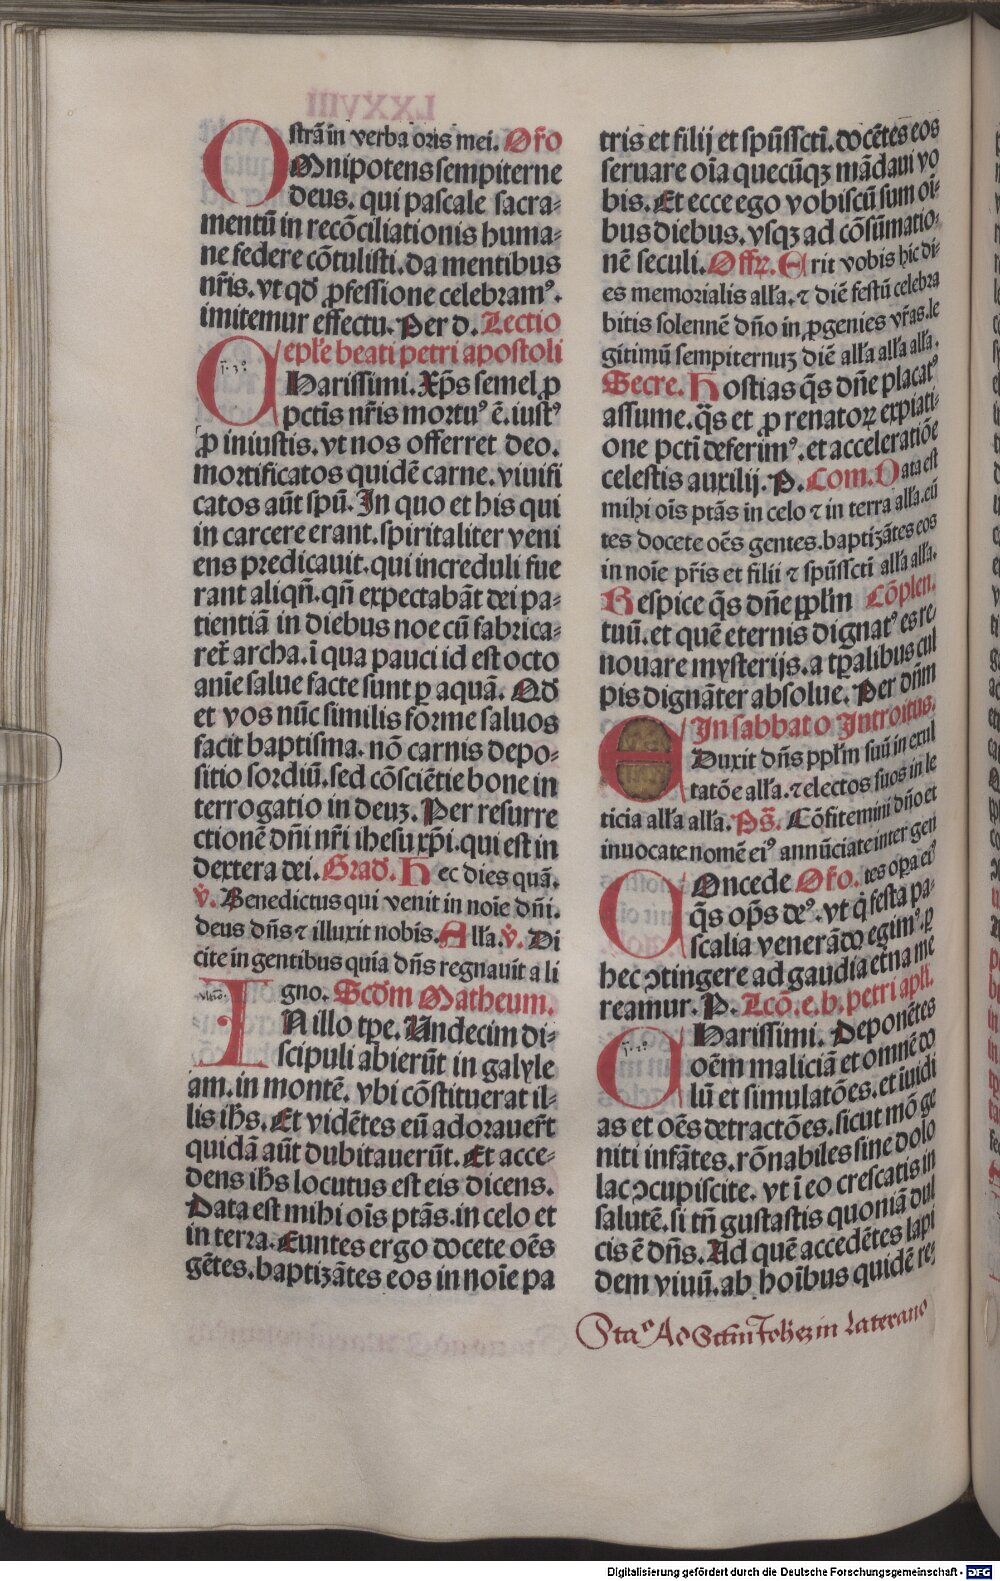 strā in verba oris mei. Or̄o
OMnipotens sempiterne
deus. qui pascale sacra-
mentū in recōciliationis huma-
ne federe cōtulisti. da mentibus
nr̄is. vt qd̄ ꝓfessione celebramꝰ.
imitemur effectu. Per d. Lectio
epl̄e beati petri apostoli
CHarissimi. Xp̄s semel ꝓ
pctīs nr̄is mortuꝰ ē. iustꝰ
ꝓ iniustis. vt nos offerret deo.
mortificatos quidē carne. viuifi
catos aūt spū. In quo et his qui
in carcere erant. spiritaliter veni
ens predicauit. qui increduli fue
rant aliqn̄. qn̄ expectabāt dei pa-
tientiā in diebus noe cū fabrica-
ret̄ archa. ī qua pauci id est octo
anīe salue facte sunt ꝑ aquā. Qd̄
et vos nūc similis forme saluos
facit baptisma. nō carnis depo-
sitio sordiū. sed cōsciētie bone in
terrogatio in deuꝫ. Per resurre
ctionē dn̄i nr̄i ihesu xp̄i. qui est in
dextera dei. Grad̄. Hec dies quā.
v̄. Benedictus qui venit in noīe dn̄i.
deus dn̄s ⁊ illuxit nobis. All̄a. v̄. Di
cite in gentibus quia dn̄s regnauit a li
gno. Scd̄m Matheum.
IN illo tp̄e. Undecim di-
scipuli abierūt in galyle
am. in montē. vbi cōstituerat il-
lis ih̄s. Et vidētes eū adorauer̄t
quidā aūt dubitauerūt. Et acce-
dens ih̄s locutus est eis dicens.
Data est mihi oīs ptās. in celo et
in terra. Euntes ergo docete oēs
gētes. baptizātes eos in noīe pa
tris et filij et spūssctī. docētes eos
seruare oīa quecūqꝫ mādaui vo
bis. Et ecce ego vobiscū sum oī-
bus diebus. vsqꝫ ad cōsūmatio-
nē seculi. Offꝝ. Erit vobis hic di-
es memorialis all̄a. ⁊ diē festū celebra
bitis solennē dn̄o in ꝓgenies vr̄as. le
gitimū sempiternuꝫ diē all̄a all̄a all̄a.
Secre. Hostias qs̄ dn̄e placatꝰ
assume. qs̄ et ꝓ renatoꝝ expiati-
one pctī deferimꝰ. et acceleratiōe
celestis auxilij. P. Com. Data est
mihi oīs ptās in celo ⁊ in terra all̄a. eū
tes docete oēs gentes. baptizātes eos
in noīe pr̄is et filii ⁊ spūssctī all̄a all̄a.
Respice qs̄ dn̄e ppl̄m Cōplen.
tuū. et quē eternis dignatꝰ es re
nouare mysterijs. a tꝑalibus cul
pis dignāter absolue. Per dn̄m
In sabbato Introitus.
EDuxit dn̄s ppl̄m suū in exul
tatōe all̄a. ⁊ electos suos in le
ticia all̄a all̄a. Ps̄. Cōfitemini dn̄o et
inuocate nomē eiꝰ annūciate inter gen
COncede Or̄o. tes oꝑa eiꝰ
qs̄ op̄s deꝰ. vt q̄ festa pa-
scalia venerādo egimꝰ. ꝑ
hec ↄtingere ad gaudia etna me
reamur. P. Lcō. e. b. petri apl̄i.
CHarissimi. Deponētes
oēm maliciā et omnē do
lū et simulatōes. et īuidi
as et oēs detractōes. sicut mō ge
niti infātes. rōnabiles sine dolo
lac ↄcupiscite. vt ī eo crescatis in
salutē. si tn̄ gustastis quoniā dul
cis ē dn̄s. Ad quē accedētes lapi
dem viuū. ab hoībus quidē re-
Staᵒ Ad Sctm̄ Joh̄ez in Laterano
Digitalisierung gefördert durch die Deutsche Forschungsgemeinschaft - DFG